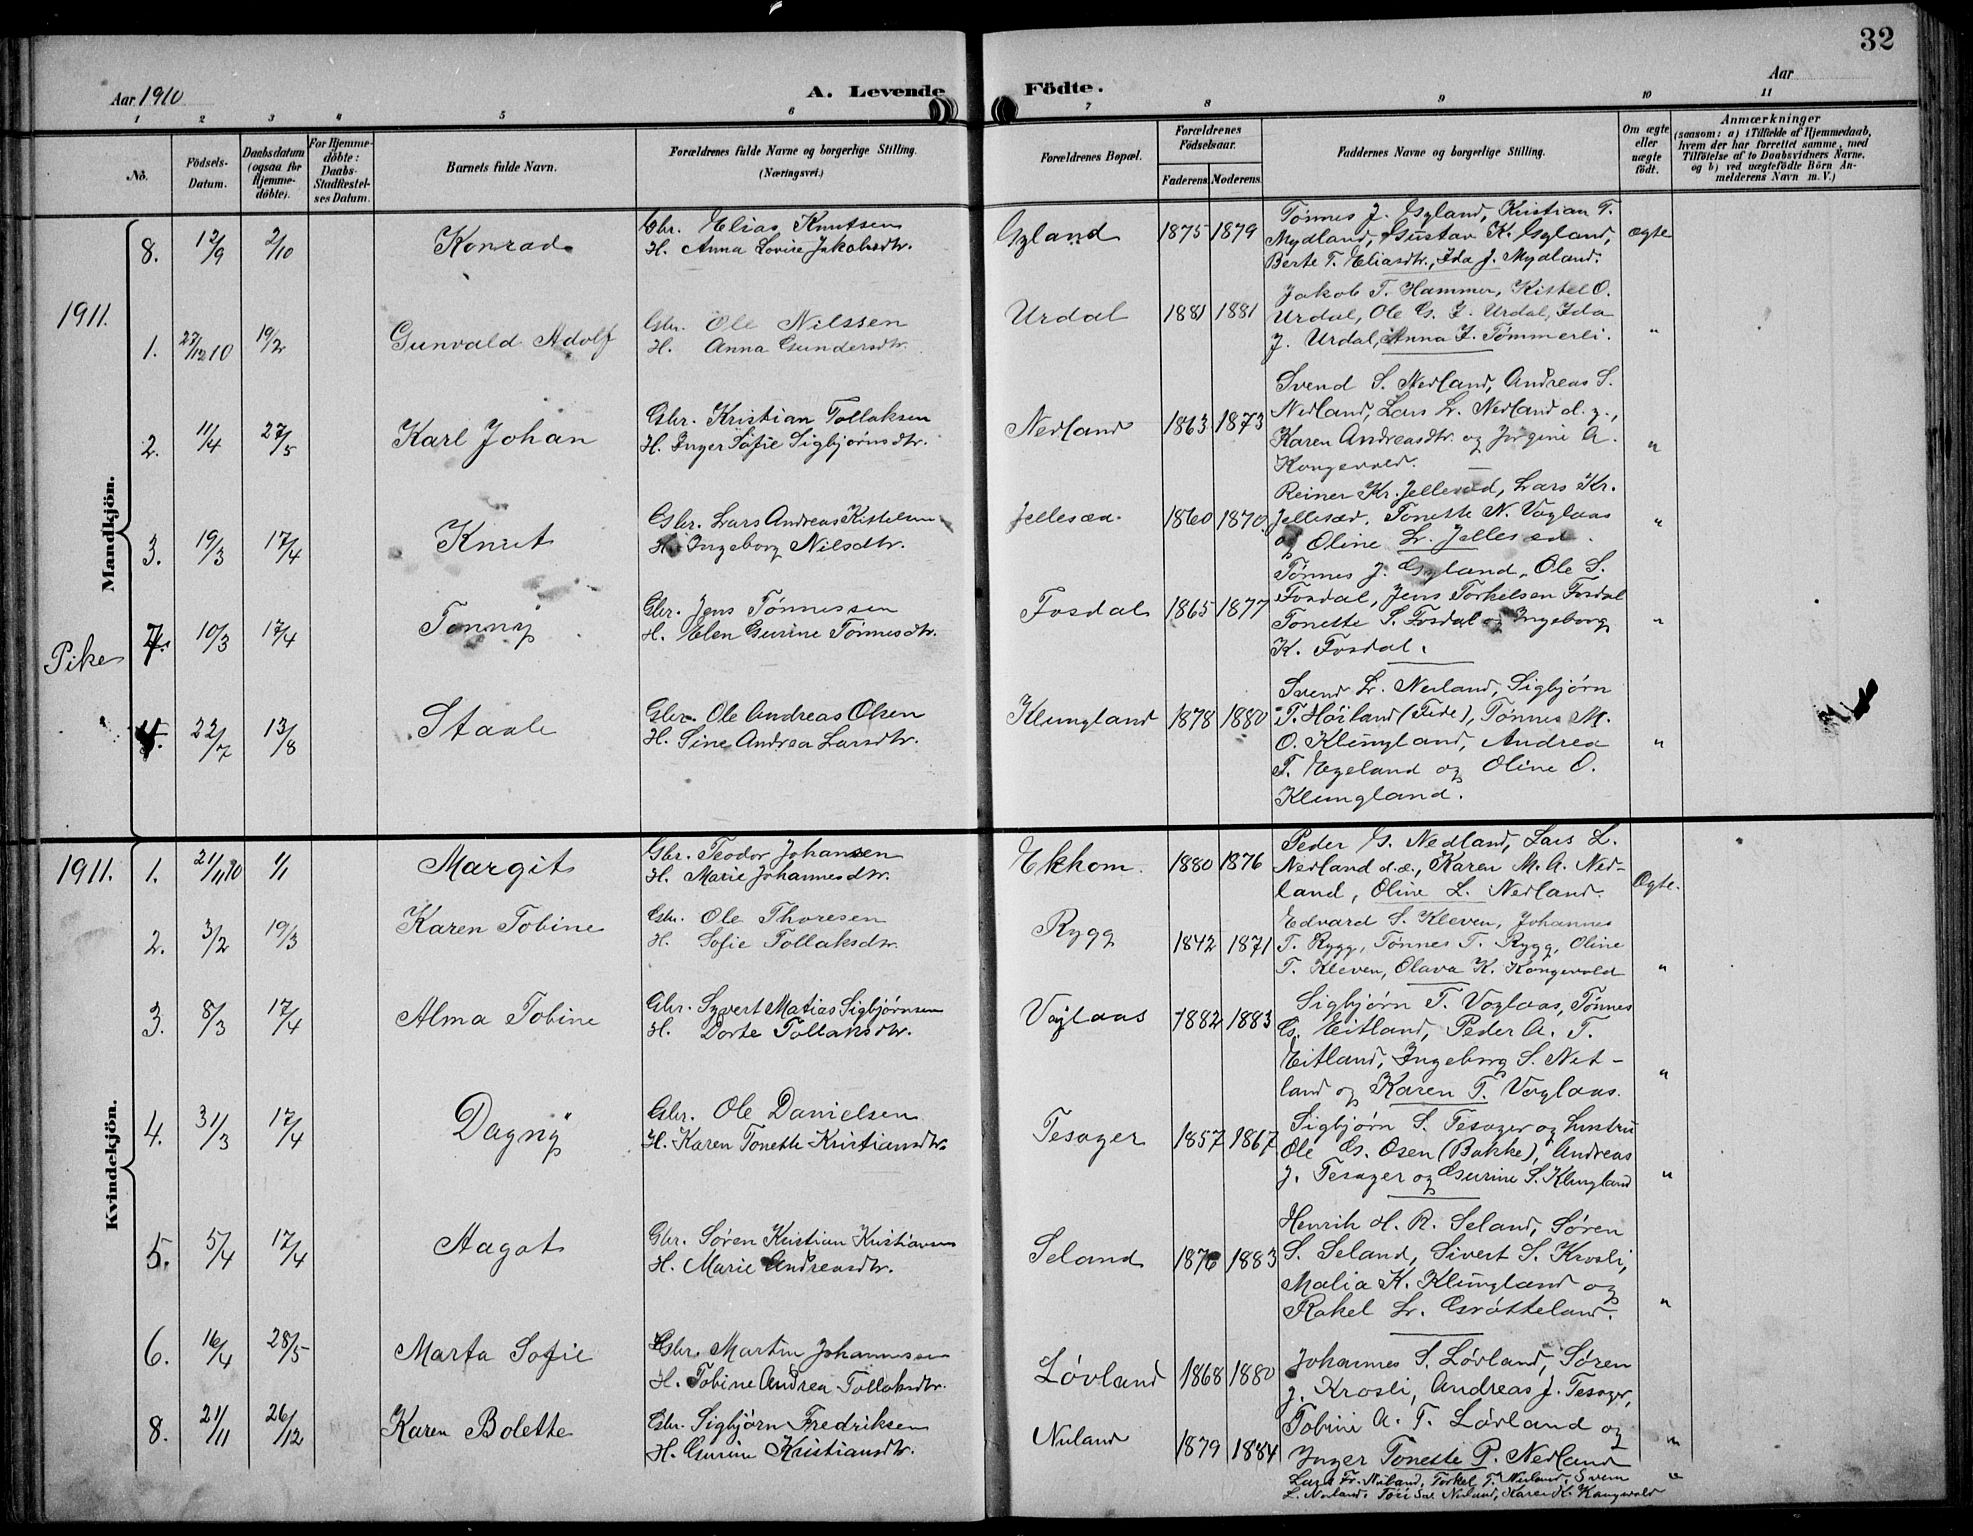 32
Aar 1910
A. Levende
Födte.
Aar
1
2
3
4
5
6
7
8
9
10
11
No.
Födsels-
Datum.
Daabsdatum
(ogsaa for
Hjemme-
döbte).
For Hjemme-
döbte:
Daabs-
Stadfæstel-
ses Datum.
Barnets fulde Navn.
Forældrenes fulde Navne og borgerlige Stilling.
(Næringsvei.)
Forældrenes Bopæl.
Forældrenes
Födselsaar.
Faderens.
Moderens.
Faddernes Navne og borgerlige Stilling.
Om ægte
eller
uægte
födt.
Anmærkninger
(saasom: a) i Tilfælde af Hjemmedaab,
hvem der har forrettet samme, med
Tilföielse af to Daabsvidners Navne,
og b) ved uægtefödte Börn An-
melderens Navn m. V.)
Mandkjön.
8. 12/9 2/10 Konrad
Gbr. Elias Knutsen
H. Anna Lovise Jakobsdtr.
Gyland 1875 1879
Tønnes J. Gyland, Kristian T.
Mydland, Gustav K. Gyland,
Berte T. Eliasdtr., Ida J. Mydland.
ægte
1911.
1. 27/12 10 19/2 Gunvald Adolf
Gbr. Ole Nilssen
H. Anna Gundersdtr.
Urdal 1881 1881
Jakob T. Hammer, Kittel O.
Urdal, Ole G. J. Urdal, Ida
J. Urdal, Anna J. Tømmerli.
"
2. 11/4 27/5 Karl Johan
Gbr. Kristian Tollaksen
H. Inger Sofie Sigbjørnsdtr.
Nedland 1863 1873
Svend S. Nedland, Andreas S.
Nedland, Lars L. Nedland d. y.,
Karen Andreasdtr. og Jørgine A.
Kongevold.
"
3. 19/3 17/4 Knut
Gbr. Lars Andreas Kittelsen
H. Ingeborg Nilsdtr.
Jellesæd. 1860 1870
Reiner Kr. Jellesæd, Lars Kr.
Jellesæd, Tonette N. Voglaas
og Oline L. Jellesæd.
"
Pike
4. 10/3 17/4 Tonny
Gbr. Jens Tønnessen
H. Elen Gurine Tønnesdtr.
Fosdal 1865 1877
Tønnes J. Gyland, Ole S.
Fosdal, Jens Torkelsen Fosdal
Tonette S. Fosdal og Ingeborg
K. Fosdal.
"
" 22/7 13/8 Staale
Gbr. Ole Andreas Olsen
H. Sine Andrea Larsdtr.
Klungland 1878 1880
Svend L. Nedland, Sigbjørn
T. Høiland (Fede), Tønnes M.
O. Klungland, Andrea
T. Egeland og Oline O.
Klungland.
"
Kvindekjön.
1911. 1. 21/11 10 1/1 Margit
Gbr. Teodor Johansen
H. Marie Johannesdtr.
Ekhom. 1880 1876
Peder G. Nedland, Lars L.
Nedland d.æ., Karen M. A. Ned-
land, Oline L. Nedland.
Ægte.
2. 3/2 19/3 Karen Tobine
Gbr. Ole Thoresen
H. Sofie Tollaksdtr.
Rygg 1842 1871
Edvard S. Kleven, Johannes
T. Rygg, Tønnes T. Rygg, Oline
T. Kleven, Olava K. Kongevold
"
3. 8/3 17/4 Alma Tobine
Gbr. Syvert Matias Sigbjørnsen
H. Dorte Tollaksdtr.
Voglaas 1882 1883
Sigbjørn T. Voglaas, Tønnes
G. Eitland, Peder A. T.
Eitland, Ingeborg S. Net-
land og Karen T. Voglaas.
"
4. 31/3 17/4 Dagny
Gbr. Ole Danielsen
H. Karen Tonette Kristiansdtr.
Tesager 1857 1867
Sigbjørn S. Tesager og hustru
Ole G. Osen (Bakke), Andreas
J. Tesager og Gurine S. Klungland
"
5. 5/4 17/4 Aagot
Gbr. Søren Kristian Kristiansen
H. Marie Andreasdtr.
Seland 1876 1883
Henrik H. R. Seland, Søren
S. Seland, Sivert S. Krosli,
Malia K. Klungland og
Rakel L. Grøtteland.
"
6. 16/4 28/5 Marta Sofie
Gbr. Martin Johannesen
H. Tobine Andrea Tollaksdtr.
Løvland 1868 1880
Johannes S. Løvland, Søren
J. Krosli, Andreas J. Tesager,
Tobine A. T. Løvland og
Inger Tonette P. Nedland
"
8. 21/11 26/12 Karen Bolette
Gbr. Sigbjørn Fredriksen
H. Gurine Kristiansdtr.
Nuland 1879 1884
Lars Fr. Nuland, Torkel T. Nuland, Svein
L. Nuland, Nuland, Karen K. Kongevold
"